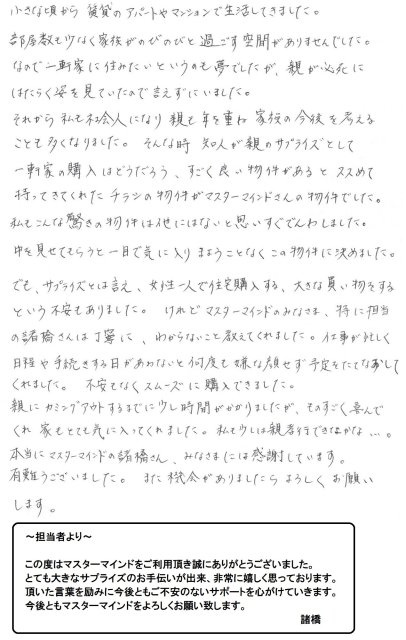 小さな頃から賃貸のアパートやマンションで生活してきました。
部屋数も少なく家族がのびのびと過ごす空間がありませんでした。
なので一軒家に住みたいというのも夢でしたが、親が必死に
はたらく姿を見ていたので言えずにいました。
それから私も社会人になり親も年を重ね家族の今後を考える
ことも多くなりました。そんな時知人が親のサプライズとして
一軒家の購入はどうだろう、すごく良い物件があるとススめて
持ってきてくれたチラシの物件がマスターマインドさんの物件でした。
私もこんな驚きの物件は他にはないと思いすぐでんわしました。
中を見せてもらうと一目で気に入りまようことなくこの物件に決めました。
でも、サプライズとは言え、女性一人で住宅購入する、大きな買い物をする
という不安もありました。けれどマスターマインドのみなさま、特に担当
の諸橋さんは丁寧に、わからないこと教えてくれました。仕事が忙しく
日程や手続きする日があわないと何度も嫌な顔せず予定をたてなおして
くれました。不安もなくスムーズに購入できました。
親にカミングアウトするまでに少し時間がかかりましたが、ものすごく喜んで
くれ家もとても気に入ってくれました。私も少しは親孝行できたかな…。
本当にマスターマインドの諸橋さん、みなさまには感謝しています。
有難うございました。また機会がありましたらよろしくお願い
します。
～担当者より～
この度はマスターマインドをご利用頂き誠にありがとうございました。
とても大きなサプライズのお手伝いが出来、非常に嬉しく思っております。
頂いた言葉を励みに今後ともご不安のないサポートを心がけていきます。
今後ともマスターマインドをよろしくお願い致します。
諸橋